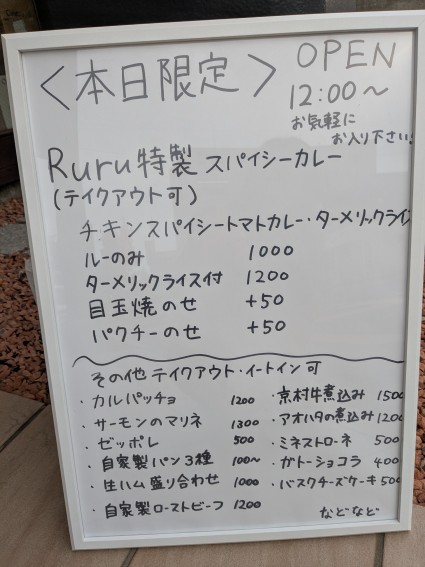 ＜本日限定＞ OPEN
12:00〜
お気軽に
お入り下さい!
Ruru特製 スパイシーカレー
(テイクアウト可)
チキンスパイシートマトカレー・ターメリックライ
ルーのみ 1000
ターメリックライス付 1200
目玉焼のせ +50
パクチーのせ +50
その他 テイクアウト・イートイン 可
・カルパッチョ 1200
・サーモンのマリネ 1300
・ゼッポレ 500
・自家製パン3種 100〜
・生ハム盛り合わせ 1000
・自家製ローストビーフ 1200
・京村牛煮込み 1500
・アオハタの煮込み 1200
・ミネストローネ 500
・ガトーショコラ 400
・バスクチーズケーキ 500
などなど